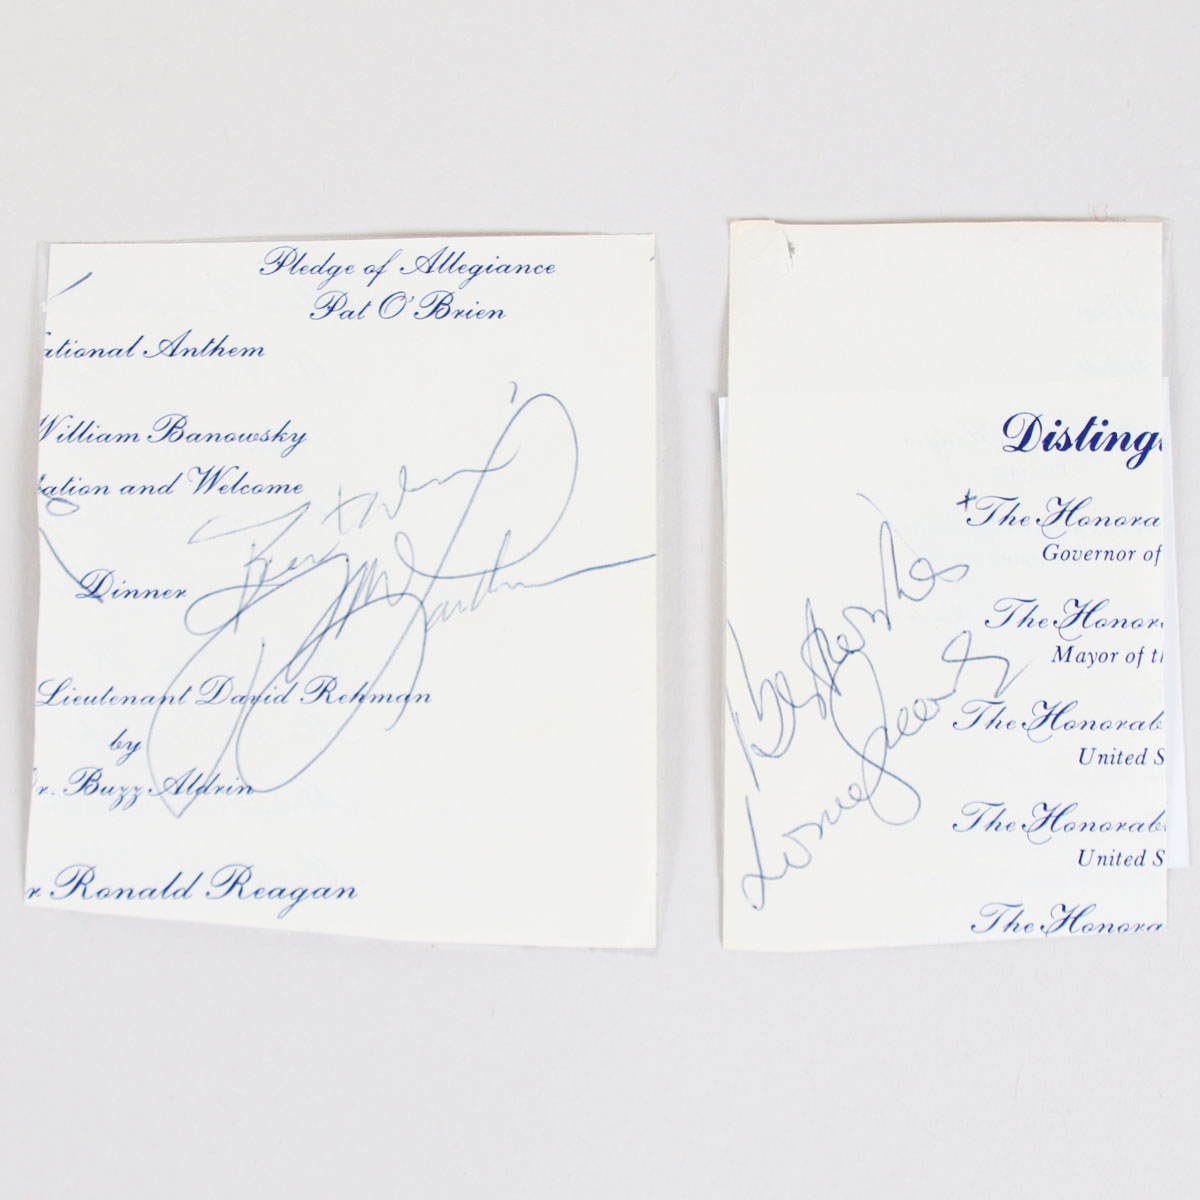 Pledge of Allegiance
Pat O'Brien
ational Anthem
William Banowsky
ation and Welcome
Dinner
Lieutenant David Rehman
by
r. Buzz Aldrin
r Ronald Reagan
Disting
*The Honora
Governor of
The Honor
Mayor of th
The Honorab
United S
The Honorab
United S
The Honora
Best wishes
Lorne Greene